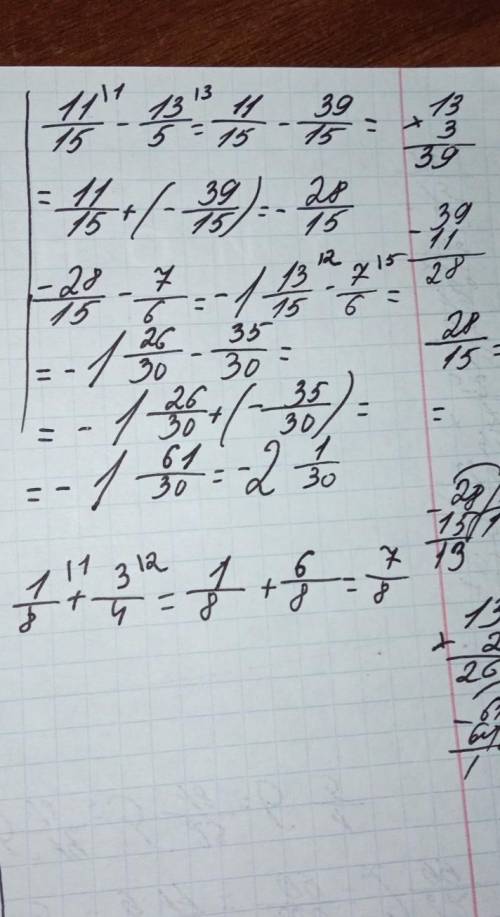 11/15 \1 - 13/5 \3 = 11/15 - 39/15 =
= 11/15 + (- 39/15) = - 28/15
- 28/15 - 7/6 = -1 13/15 \2 - 7/6 \5 =
= -1 26/30 - 35/30 =
= -1 26/30 + (- 35/30) =
= -1 61/30 = -2 1/30
1/8 \1 + 3/4 \2 = 1/8 + 6/8 = 7/8
× 13
3
39
- 39
11
28
28/15 =
=
- 28
15 1
13
13
× 2
26